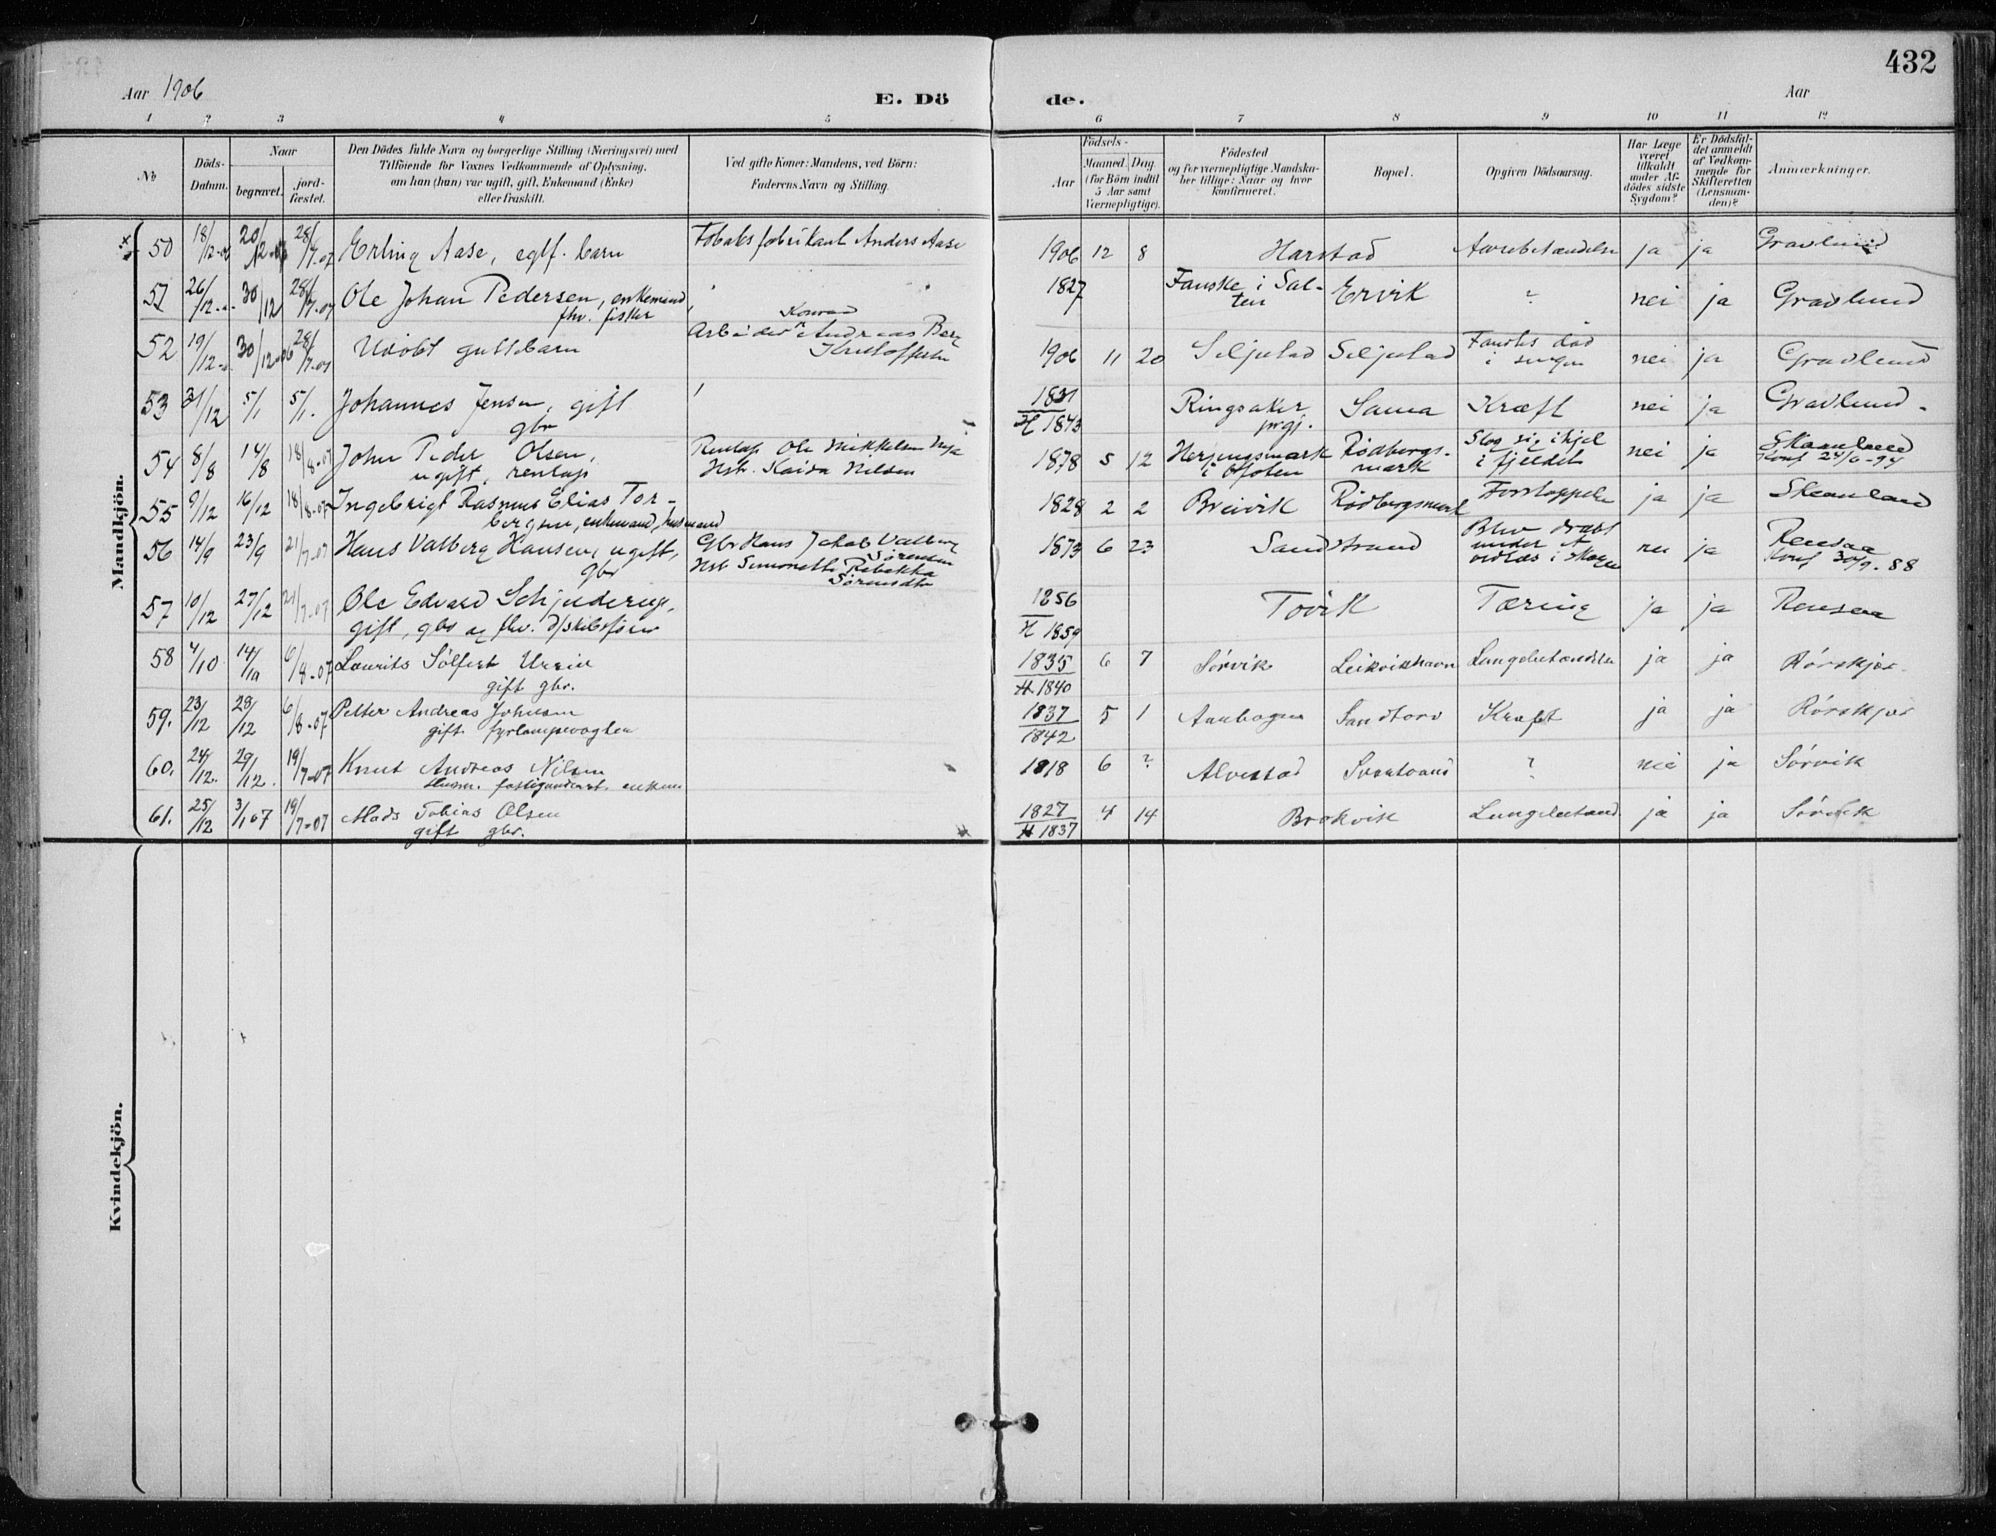 432
Aar 1906
E. Dö
de.
Aar
1 2 3 4 5 6 7 8 9 10 11 12
No
Döds-Datum.
Naar
begravet.
jord-fæstet.
Den Dödes fulde Navn og borgerlige Stilling (Næringsvei) med
Tilföiende for Voxnes Vedkommende af Oplysning,
om han (hun) var ugift, gift, Enkemand (Enke)
eller fraskilt.
Ved gifte Koner: Mandens, ved Börn:
Faderens Navn og Stilling.
Födsels-
Aar
Maaned. Dag.
(for Börn indtil
5 Aar samt
Værnepligtige).
Födested
og for værnepligtige Mandska-
ber tillige: Naar og hvor
konfirmeret.
Bopæl.
Opgiven Dödsaarsag.
Har Læge
været
tilkaldt
under Af-
dödes sidste
Sygdom?
Er Dödsfal-
det anmeldt
af Vedkom-
mende for
Skifteretten
(Lensman-
den)?
Anmærkninger.
Mandkjön.
50 18/12-06 20/12-06 28/7-07 Erling Aase, egtf. barn Tobaksfabrikant Anders Aase 1906 12 8 Harstad ja ja Gravlund
51 26/12 30/12 28/7-07 Ole Johan Pedersen, enkemand 1827 Fauske i Sal- Ervik ? nei ja Gravlund
fhv. fisker
ten
Konrad
52 19/12 30/12-06 28/7-07 Udöbt guttebarn Arbeider Andreas Berg 1906 11 20 Seljestad Seljestad Fandtes död nei ja Gravlund
Kristoffersen
i sengen
53 31/12 5/1 5/1. Johannes Jensen, gift 1831 Ringsaker Sama Kræft nei ja Gravlund.
gbr
H 1843 prgj.
54 8/8 14/8 18/8-07 John Peder Olsen, Renlap Ole Mikkelsen 1878 5 12 Herjangsmark Rödbergs- Slog sig ihjel nei ja Skaanland
ugift, renlap Hst. Kaisa Nilsen i Ofoten mark i fjeldet Konf 24/6-94
55 9/12 16/12 18/8-07 Ingebrigt Rasmus Elias Tor- 1828 2 2 Breivik Rödbergsmark Forstoppelse ja ja Skaanland
bergsen, enkemand, husmand
56 14/9 23/9 21/7-07 Hans Valberg Hansen, ugift, Gbr Hans Jakob Valberg 1873 6 23 Sandstrand Blev dræbt nei ja Rensaa
gbr
Sörensen
Hst Simonette Rebekka
Sörensdtr
under et
vedlæs i skogen
Konf 30/9-88
57 10/12 27/12 21/7-07 Ole Edvard Schjelderup, 1856 Tovik Tæring ja ja Rensaa
gift, gbr og fhv. d/skibsförer
H 1859
58 4/10 14/10 6/8-07 Laurits Sölfert 1835 6 7 Sörvik Leikvikhavn Lungebetændelse ja ja Rörskjær
gift gbr.
H 1840
59. 23/12 28/12 6/8-07 Petter Andreas Johnsen 1837 5 1 Sandtorv Kræft ja ja Rörskjær
gift fyrlampevogter
1842
60. 24/12. 29/12. 19/7-07 Knut Andreas Nilsen 1818 6 ? Alvestad ? nei ja Sörvik
61. 25/12 3/1 07 19/7-07 Mads Tobias Olsen 1827 4 14 Brokvik Lungebetænd. ja ja Sörvik
gift gbr.
H 1837
Kvindekjön.